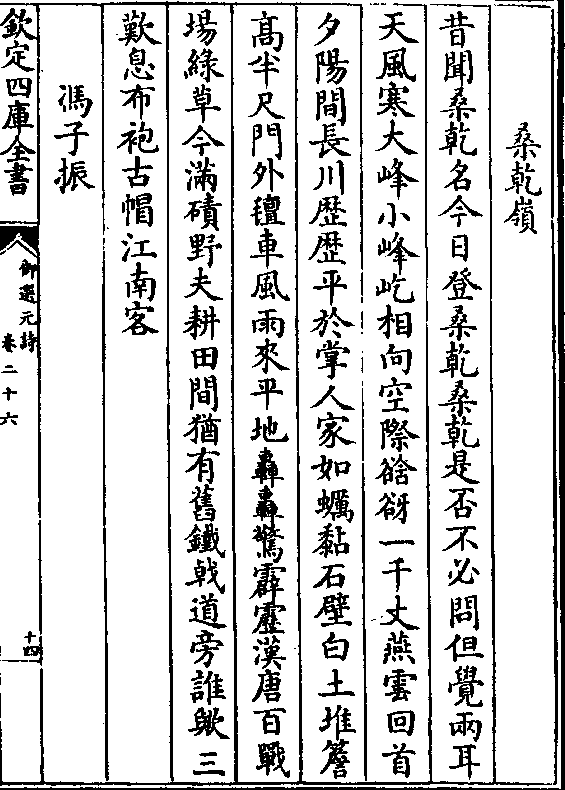 桑乾嶺
昔聞桑乾名今日登桑乾桑乾是否不必問但覺兩耳
天風寒大峰小峰屹相向空際谽谺一千丈燕雲回首
夕陽間長川歴歴平於掌人家如蠣黏石壁白土堆簷
髙半尺門外氊車風雨來平地轟轟驚霹靂漢唐百戰
場綠草今滿磧野夫耕田間猶有舊鐵戟道旁誰歟三
歎息布袍古帽江南客
馮子振
欽定四庫全書
御選元詩
卷二十六
十四